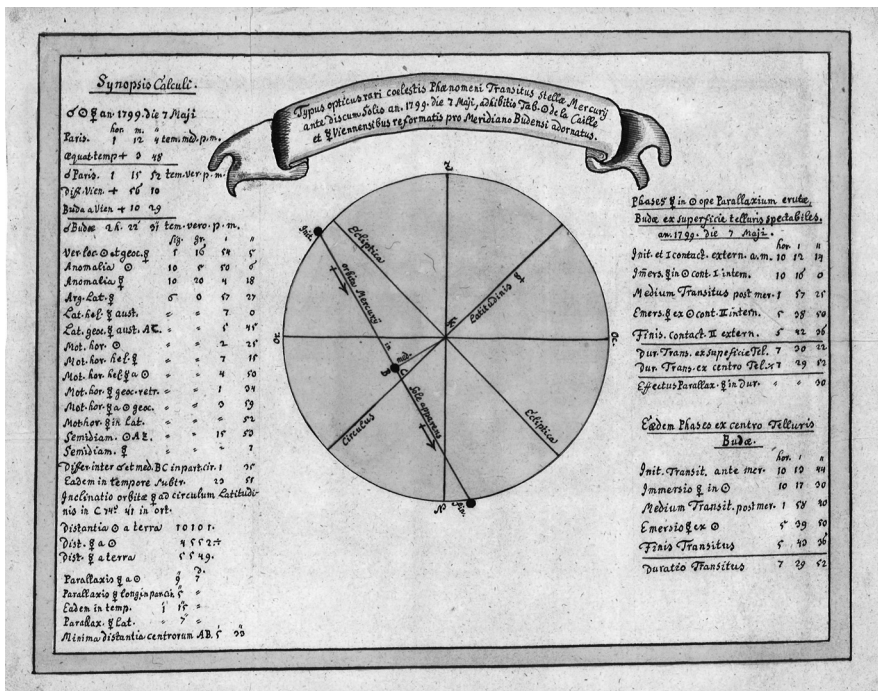 Synopsis Calculi.
☌ ☉ ☿ an. 1799. die 7 Maji
hor. m. "
Paris. 1 12 4 tem. med. p. m.
æquat. temp + 3 48
☌ Paris. 1 15 52 tem. ver. p. m.
Diff. Vien. + 56 10
Buda a Vien + 10 29
☌ Budæ 2 h. 22' 31" tem. vero. p. m.
Sig. gr. ' "
Ver. loc. ☉ et geoc. ☿ 5 16 54 5
Anomalia ☉ 10 5 50 6
Anomalia ☿ 10 20 4 18
Arg. Lat. ☿ 6 0 57 27
Lat. hel. ☿ aust. " " 7 0
Lat. geoc. ☿ aust. AC. " " 5 45
Mot. hor. ☉ " " 2 25
Mot. hor. hel. ☿ " " 7 15
Mot. hor. hel. ☿ a ☉ " " 4 50
Mot. hor. ☿ geoc. retr. " " 1 34
Mot. hor. ☿ a ☉ geoc. " " 3 59
Mot. hor. ☿ in Lat. " " " 52
Semidiam. ☉ " " 15 53
Semidiam. ☿ " " " 7
Differ. inter ☌ et med. BC in part. cir. 1 35
Eadem in tempore subtr. 23 51
Inclinatio orbitæ ☿ ad circulum Latitudi-
nis in C 74°. 41' in ort.
Distantia ☉ a terra 10101.
Dist. ☿ a ☉ 4552.
Dist. ☿ a terra 5549.
Parallaxis ☿ a ☉ 9 7
Parallaxis ☿ long. in par. cir. 5 "
Eadem in temp. 1 15 "
Parallax. ☿ Lat. " 7 "
Minima distantia centrorum AB. 5 33
Typus opticus rari coelestis Phænomeni Transitus stellæ Mercurij
ante discum Solis an. 1799. die 7 Maji, adhibitis Tab. ☉ de la Caille
et ☿ Viennensibus reformatis pro Meridiano Budensi adornatus.
Init.
Ecliptica
orbita Mercurij
in
Sole apparens
med.
B
C
A
Latitudinis ☿
Circulus
Ecliptica
Or.
Oc.
Fin.
Phases ☿ in ☉ ope Parallaxium erutæ,
Budæ ex superficie telluris spectabiles,
an. 1799. die 7 Maji.
hor. ' "
Init. et I contact. extern. a. m. 10 12 14
Imers. ☿ in ☉ cont. I intern. 10 16 0
Medium Transitus post mer. 1 57 25
Emers. ☿ ex ☉ cont. II intern. 5 38 50
Finis. contact. II extern. 5 42 36
Dur. Trans. ex supeficie Tel. 7 30 22
Dur. Trans. ex centro Tel. 7 29 52
Effectus Parallax. ☿ in dur. " " 30
Eædem Phases ex centro Telluris
Budæ.
hor. ' "
Init. Transit. ante mer. 10 13 44
Immersio ☿ in ☉ 10 17 30
Medium Transit. post mer. 1 58 40
Emersio ☿ ex ☉ 5 39 50
Finis Transitus 5 43 36
Duratio Transitus 7 29 52